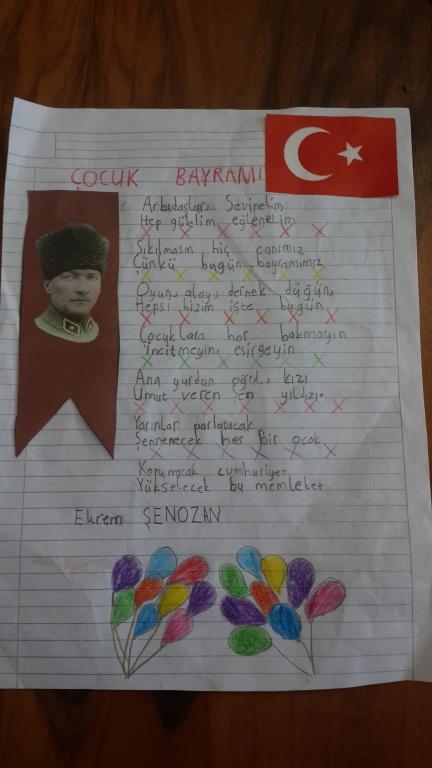 ÇOCUK BAYRAMI
Arkadaşlar, Sevinelim
Hep gülelim eğlenelim
Sıkılmasın hiç canımız
Çünkü bugün bayramımız
Oyun, alay, dernek düğün,
Hepsi bizim işte bugün
Çocuklara hor bakmayın
İncitmeyin, esirgeyin
Ana yurdun oğlu, kızı
Umut veren şen yıldızı.
Yarınlar parlatacak
Şennenecek her bir ocak
Korunacak cumhuriyet
Yükselecek bu memleket
Ekrem ŞENOZAN